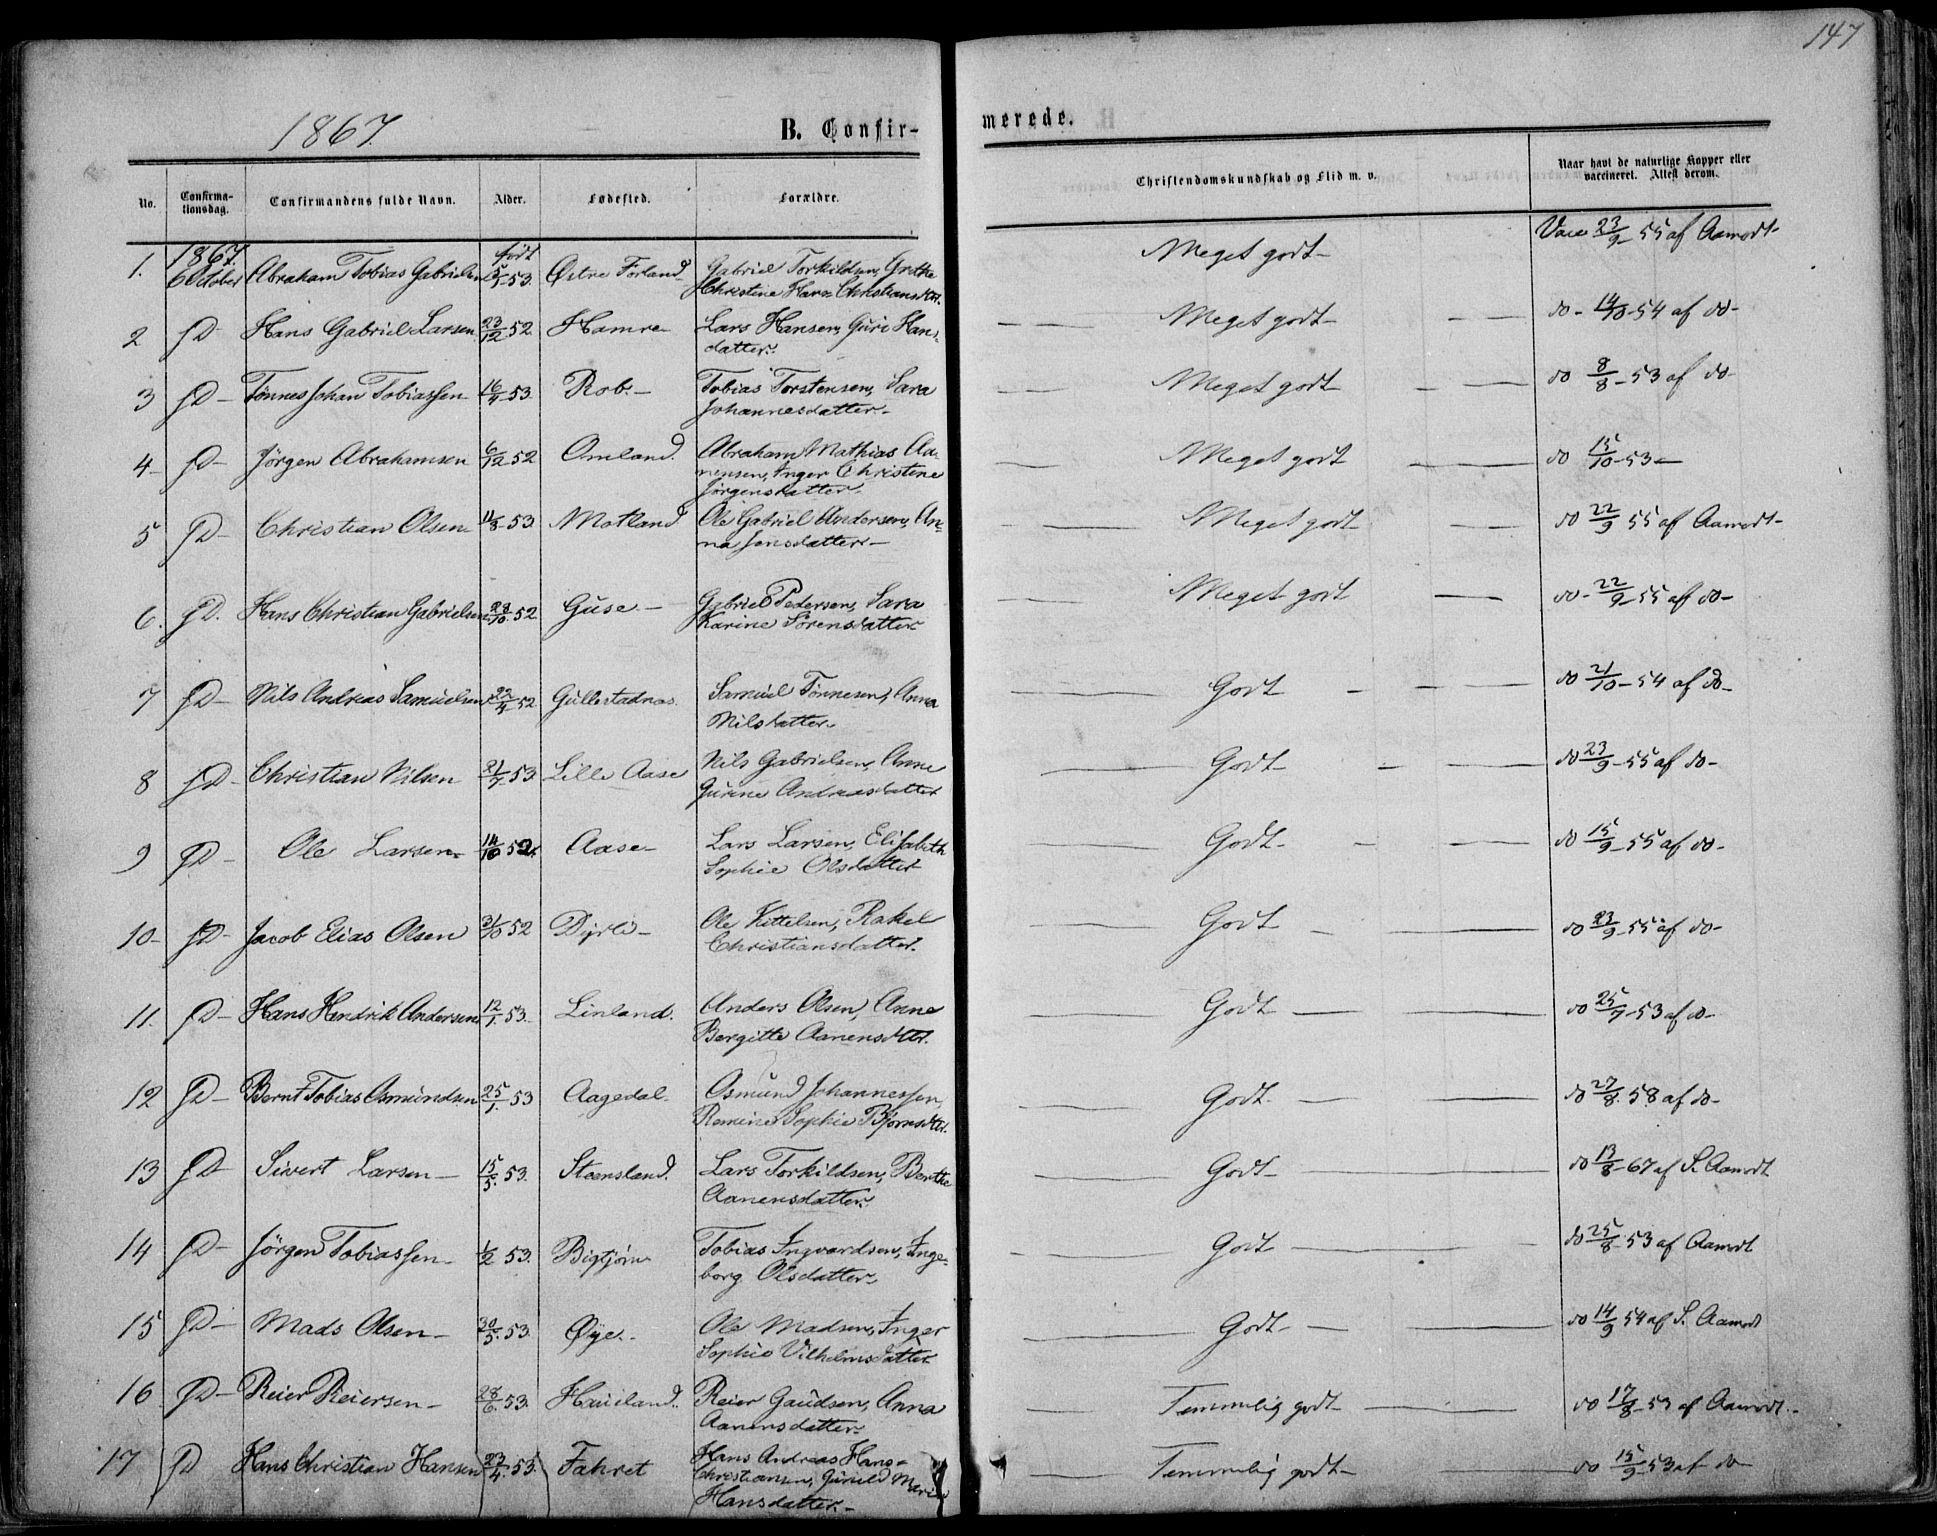 147
1867.
B. Confir-
merede.
No.
Confirma-
tionsdag.
Confirmandens fulde Navn.
Alder.
Fødested.
Forældre.
Christendomskundskab og Flid m. v.
Naar havt de naturlige Kopper eller
vaccineret. Attest derom.
1867. født
1. 6 October Abraham Tobias Gabrielsen 5/1-53. Østre Førland Gabriel Torkildsen, Grethe Meget godt- Vacc 23/9-55 af Aamodt-
Christine Hans Christiansdttr.
2 fD- Hans Gabriel Larsen 23/12 52 Hamre- Lars Hansen, Guri Hans- Meget godt- do- 14/10-54 af do-
datter.
3 fD- Tønnes Johan Tobiassen 16/4 53 Rob.- Tobias Torstensen, Sara Meget godt do 8/8-53 af do-
Johannesdatter-
4- fD- Jørgen Abrahamsen 6/12 52 Omland. Abraham Mathias Aa- Meget godt do 15/10-53-
nensen, Inger Christine
Jørgensdatter-
5 fD- Christian Olsen 11/8 53. Motland Ole Gabriel Andersen, An- Meget godt do 22/9 55 af Aamodt-
na Jensdatter-
6. fD. Hans Christian Gabrielsen 28/10 52 Guse- Gabriel Pedersen, Sara Meget godt do- 22/9-55 af do-
Karine Sørensdatter
7 fD- Nils Andreas Samuelsen 22/4 52 Gullestadnæs. Samuel Tønnesen, Anna Godt do 21/10-54 af do-
Nilsdatter-
8 fD- Christian Nilsen 21/7 53 Lille Aase Nils Gabrielsen, Anne Godt- do 23/9-55 af do-
Gurine Andreasdatter
9 fD- Ole Larsen- 14/10 52. Aase- Lars Larsen, Elisabeth Godt- do 15/9-55 af do-
Sophie Olsdatter
10- fD- Jacob Elias Olsen 21/10 52 Dyrli- Ole Kittelsen, Rakel Godt do 23/9-55 af do-
Christiansdatter.
11. fD- Hans Hendrik Andersen 12/1. 53. Linland. Anders Olsen, Anne Godt do 25/9-53 af do-
Bergitte Aanensdttr.
12 fD- Bernt Tobias Osmundsen 25/1. 53 Aagedal. Osmund Johannessen, Godt. do 27/8. 58 af do-
Romine Sophie Bjornsdttr.
13 fD- Sivert Larsen- 15/5. 53. Steensland. Lars Torkildsen, Berthe Godt- do 13/8-67 af S. Aamodt
Aanensdatter.
14 fD- Jørgen Tobiassen- 1/2 53. Bigtjørn Tobias Ingvardsen, Inge- Godt do 25/8-53 af Aamodt
borg Olsdatter-
15 fD- Mads Olsen- 30/5. 53. Øye- Ole Madsen, Inger Godt- do 14/9 54 af S. Aamodt
Sophie Vilhelmsdatter
16 fD- Reier Reiersen- 28/6. 53. Haueland. Reier Gaudsen, Anna Temmelig godt- do 17/8-53 af Aamodt.-
Aanensdatter-
17 fD Hans Christian Hansen 23/4. 53. Fahret Hans Andreas Hans- Temmelig godt- do 15/9-53 af do-
Christiansen, Gunild Marie
Hansdatter.-